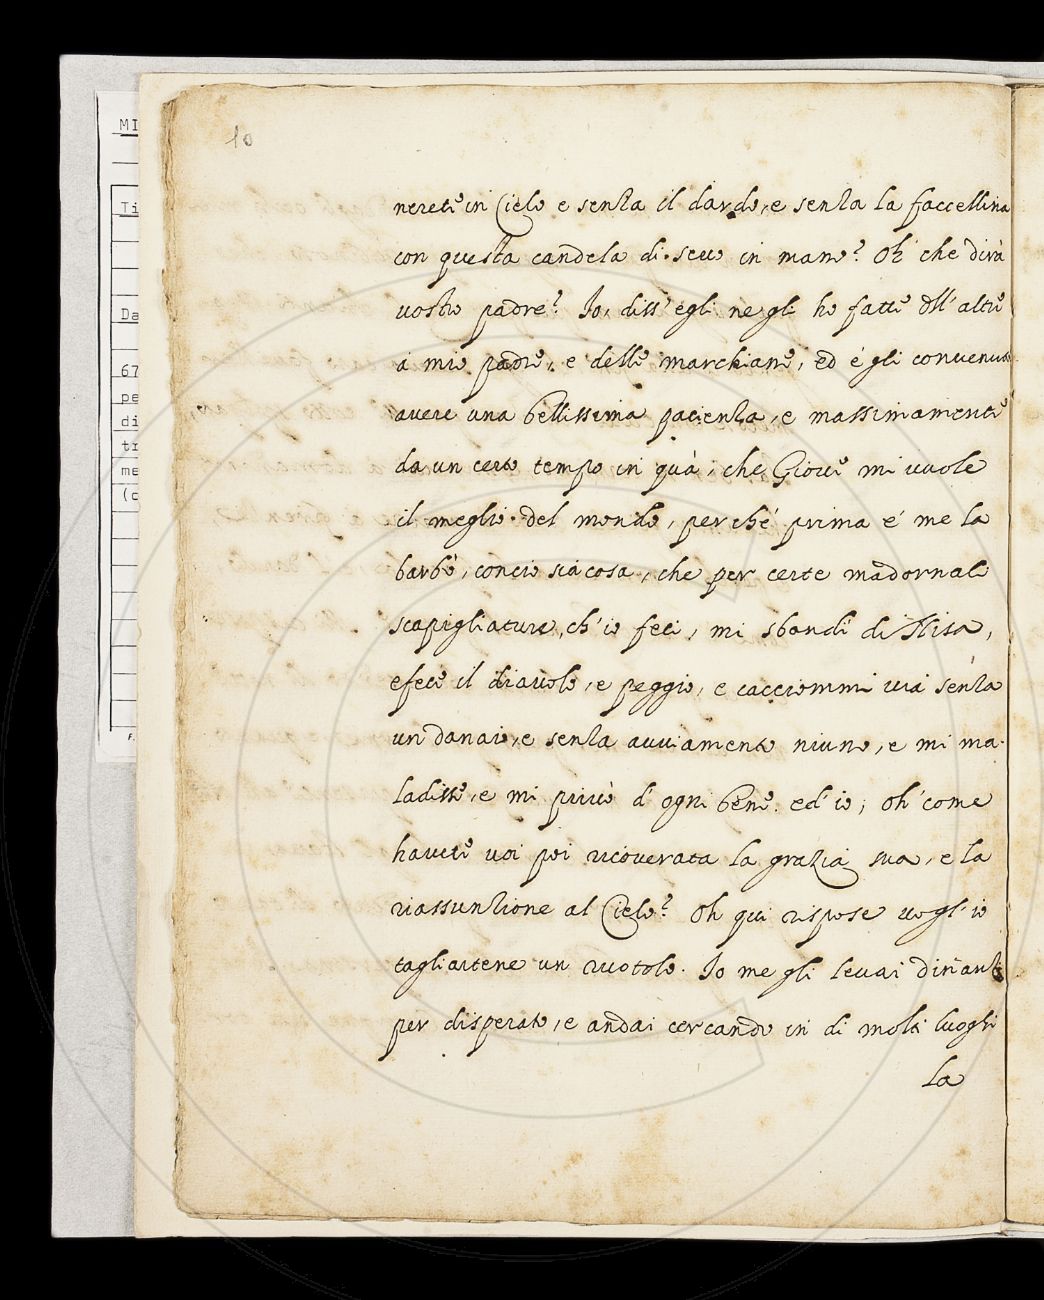 10
nerete in Cielo e senza il dardo, e senza la faccellina
con questa candela di sevo in mano? Oh che dirà
vostro padre? Io, diss' egli ne gli ho fatte dell' altre
a mio padre, e delle marchiane, ed é gli convenuto
avere una bellissima pacienza, e massimamente
da un certo tempo in quà, che Giove mi vuole
il meglio del mondo, perché prima e' me la
barbò, concio sia cosa, che per certe madornali
scapigliature, ch' io feci, mi sbandì di
e fece il diavolo, e peggio, e cacciommi via senza
un danaio, e senza avviamento niuno, e mi ma-
ladisse, e mi privò d' ogni bene. ed' io; oh' come
havete voi poi ricoverata la grazia sua, e la
riassunzione al Cielo? Oh qui rispose vogl' io
tagliartene un ruotolo. Io me gli levai dinanzi
per disperato, e andai cercando in di molti luoghi
la
MI
Ti
Da
67
pe
di
tr
me
(c
F.